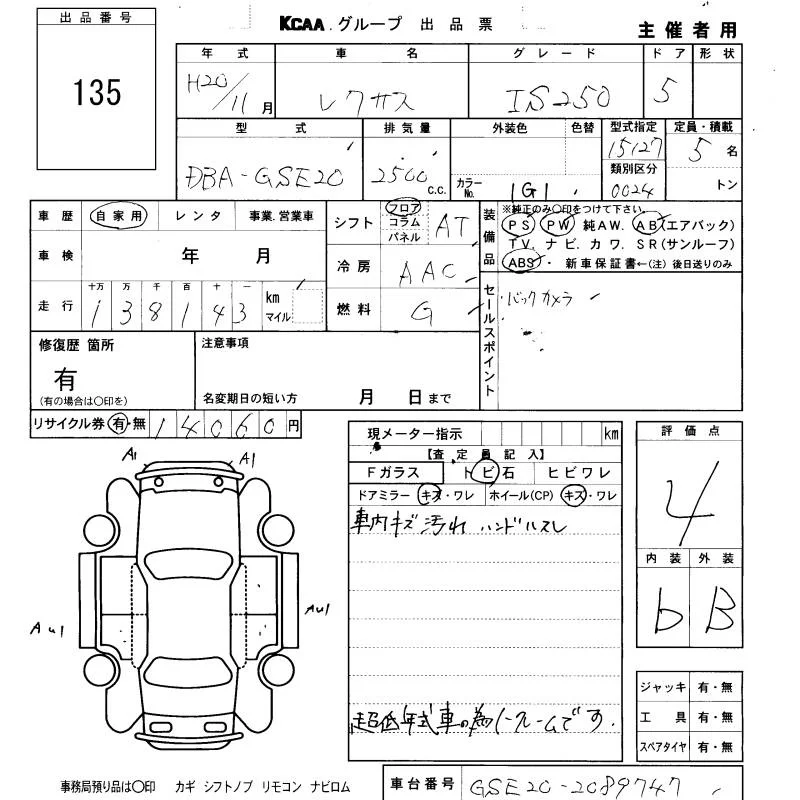 出品番号
135
KCAA.グループ 出品票
主催者用
年式 車名 グレード ドア 形状
H20/11月 レクサス IS250 5
型式 排気量 外装色 色替 型式指定 定員・積載
DBA-GSE20 2500 c.c. カラーNo. 1G1 15127 5名
類別区分
0024 トン
車歴 自家用 レンタ 事業.営業車
シフト フロア コラム パネル AT
装備品
※純正のみ○印をつけて下さい。
PS PW 純AW. AB(エアバック)
TV. ナビ. カワ. SR(サンルーフ)
ABS・ 新車保証書←(注)後日送りのみ
車検 年 月
冷房 AAC
走行 十万 万 千 百 十 一
138143 km マイル
燃料 G
セールスポイント
・バックカメラ
修復歴 箇所
有
(有の場合は○印を)
注意事項
名変期日の短い方 月 日まで
リサイクル券 有・無 14060円
現メーター指示 km
【査定員記入】
Fガラス トビ石 ヒビワレ
ドアミラー キズ・ワレ ホイール(CP) キズ・ワレ
車内キズ 汚れ ハンドルスレ
超低年式車の為ノークレームです.
評価点
4
内装 外装
b B
A1 A1
AU1
AU1
ジャッキ 有・無
工具 有・無
スペアタイヤ 有・無
事務局預り品は○印 カギ シフトノブ リモコン ナビロム
車台番号 GSE20-2089747